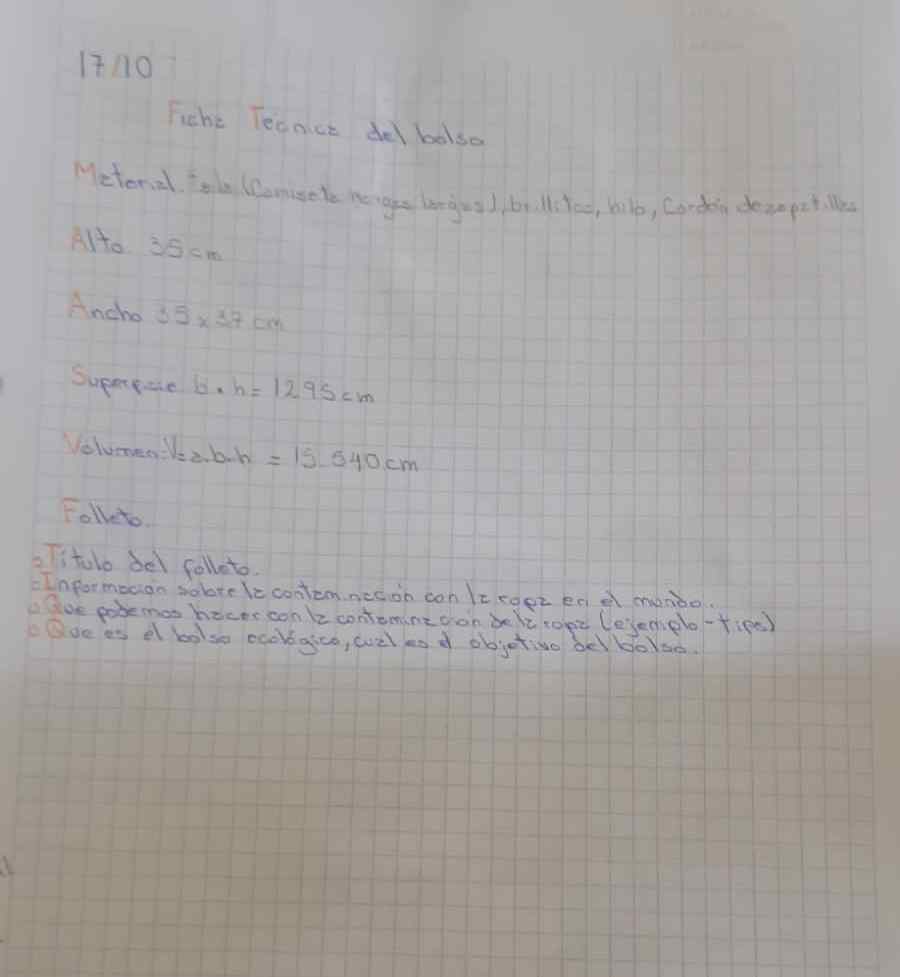 17/10
Ficha Tecnica del bolso
Material. tela (Camiseta mangas largas), brillitos, hilo, Cordón de zapatillas
Alto 35 cm
Ancho 35 x 37 cm
Superficie b.h = 1295 cm
Volumen: V= a.b.h = 15.540 cm
Folleto.
Titulo del folleto.
Información sobre la contaminación con la ropa en el mundo.
Que podemos hacer con la contaminación de la ropa (ejemplo - tips)
Que es el bolso ecológico, cual es el objetivo del bolso.